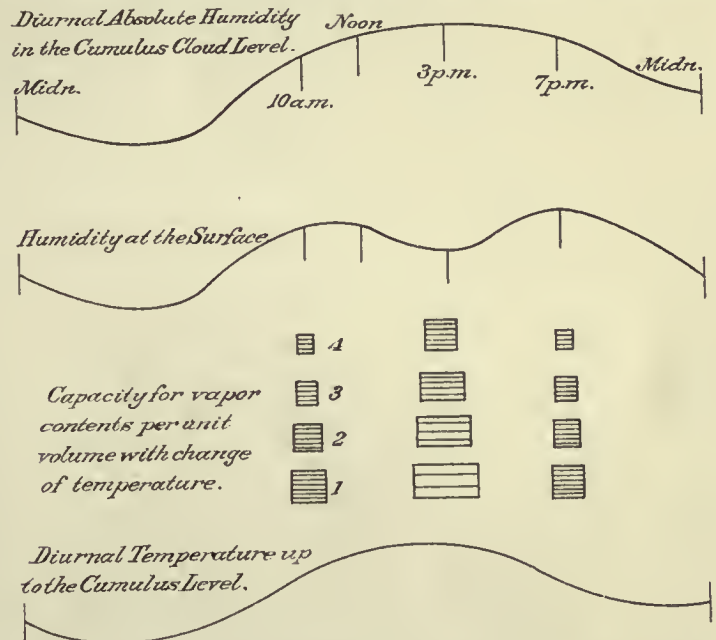 Diurnal Absolute Humidity
in the Cumulus Cloud Level.
Noon
Midn.
10 a.m.
3 p.m.
7 p.m.
Midn.
Humidity at the Surface
4
Capacity for vapor
contents per unit
volume with change
of temperature.
3
2
1
Diurnal Temperature up
to the Cumulus Level.